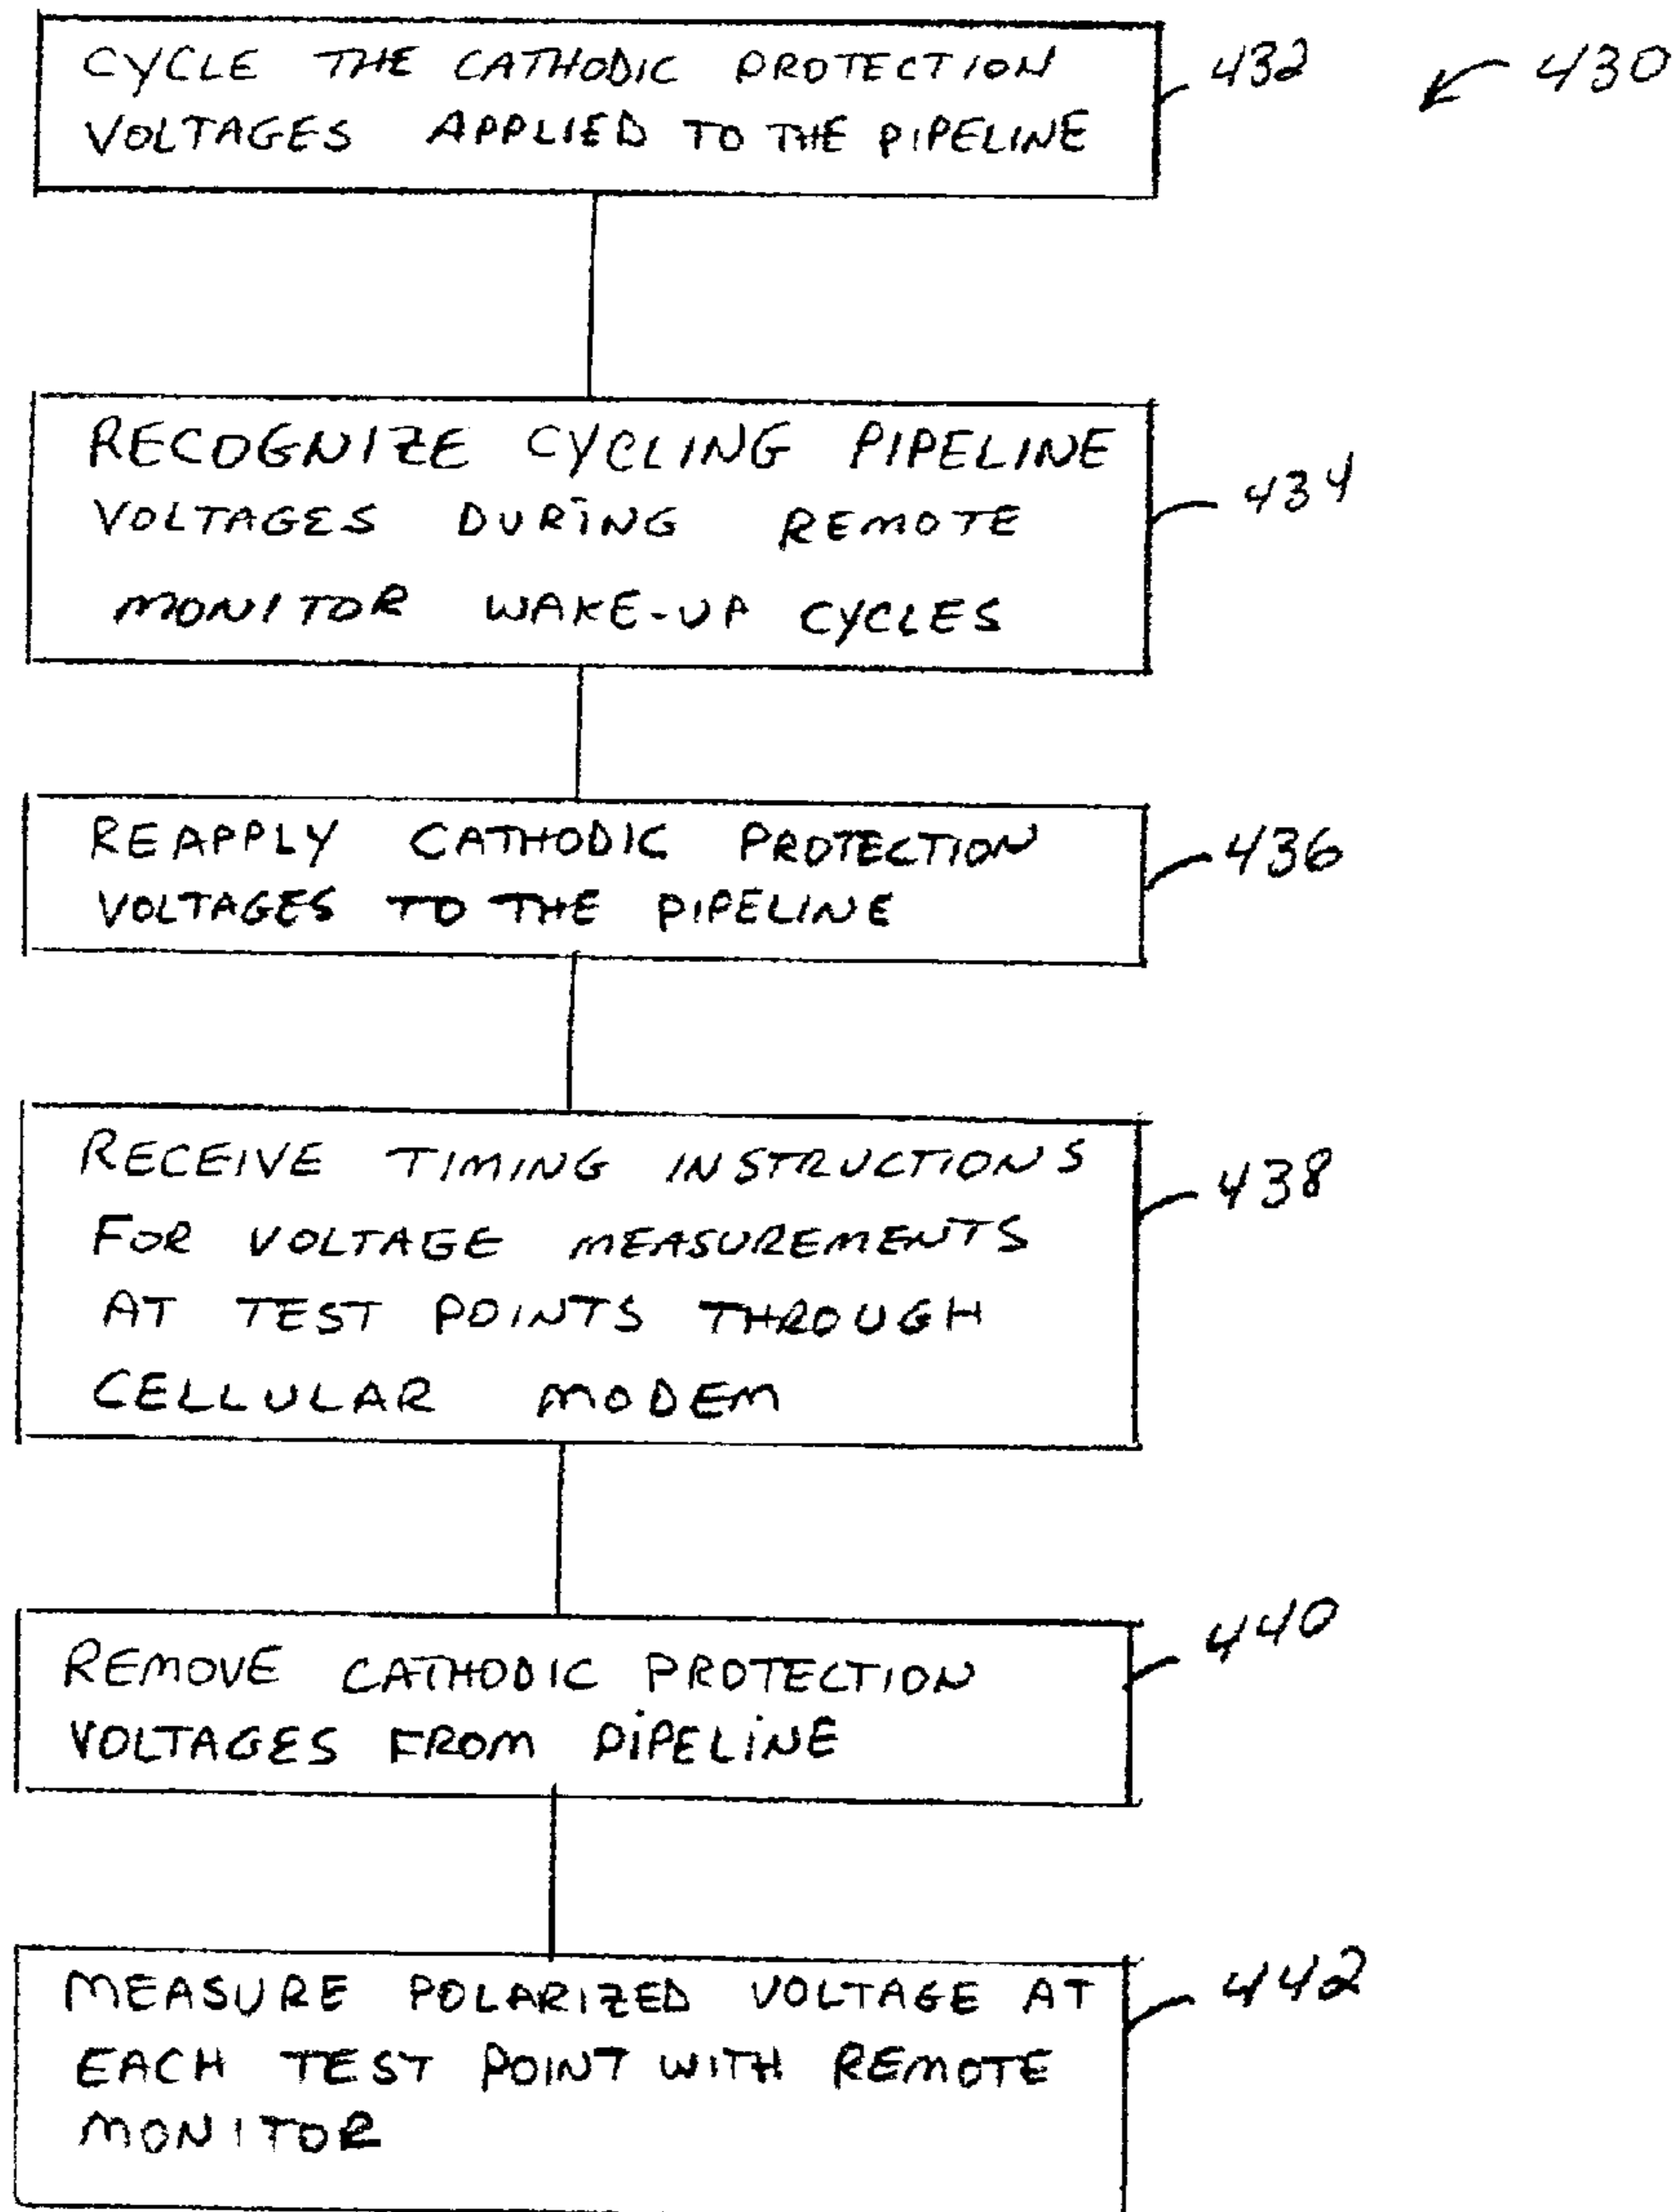 CYCLE THE CATHODIC PROTECTION
VOLTAGES APPLIED TO THE PIPELINE
432
430
RECOGNIZE CYCLING PIPELINE
VOLTAGES DURING REMOTE
MONITOR WAKE-UP CYCLES
434
REAPPLY CATHODIC PROTECTION
VOLTAGES TO THE PIPELINE
436
RECEIVE TIMING INSTRUCTIONS
FOR VOLTAGE MEASUREMENTS
AT TEST POINTS THROUGH
CELLULAR MODEM
438
REMOVE CATHODIC PROTECTION
VOLTAGES FROM PIPELINE
440
MEASURE POLARIZED VOLTAGE AT
EACH TEST POINT WITH REMOTE
MONITOR
442